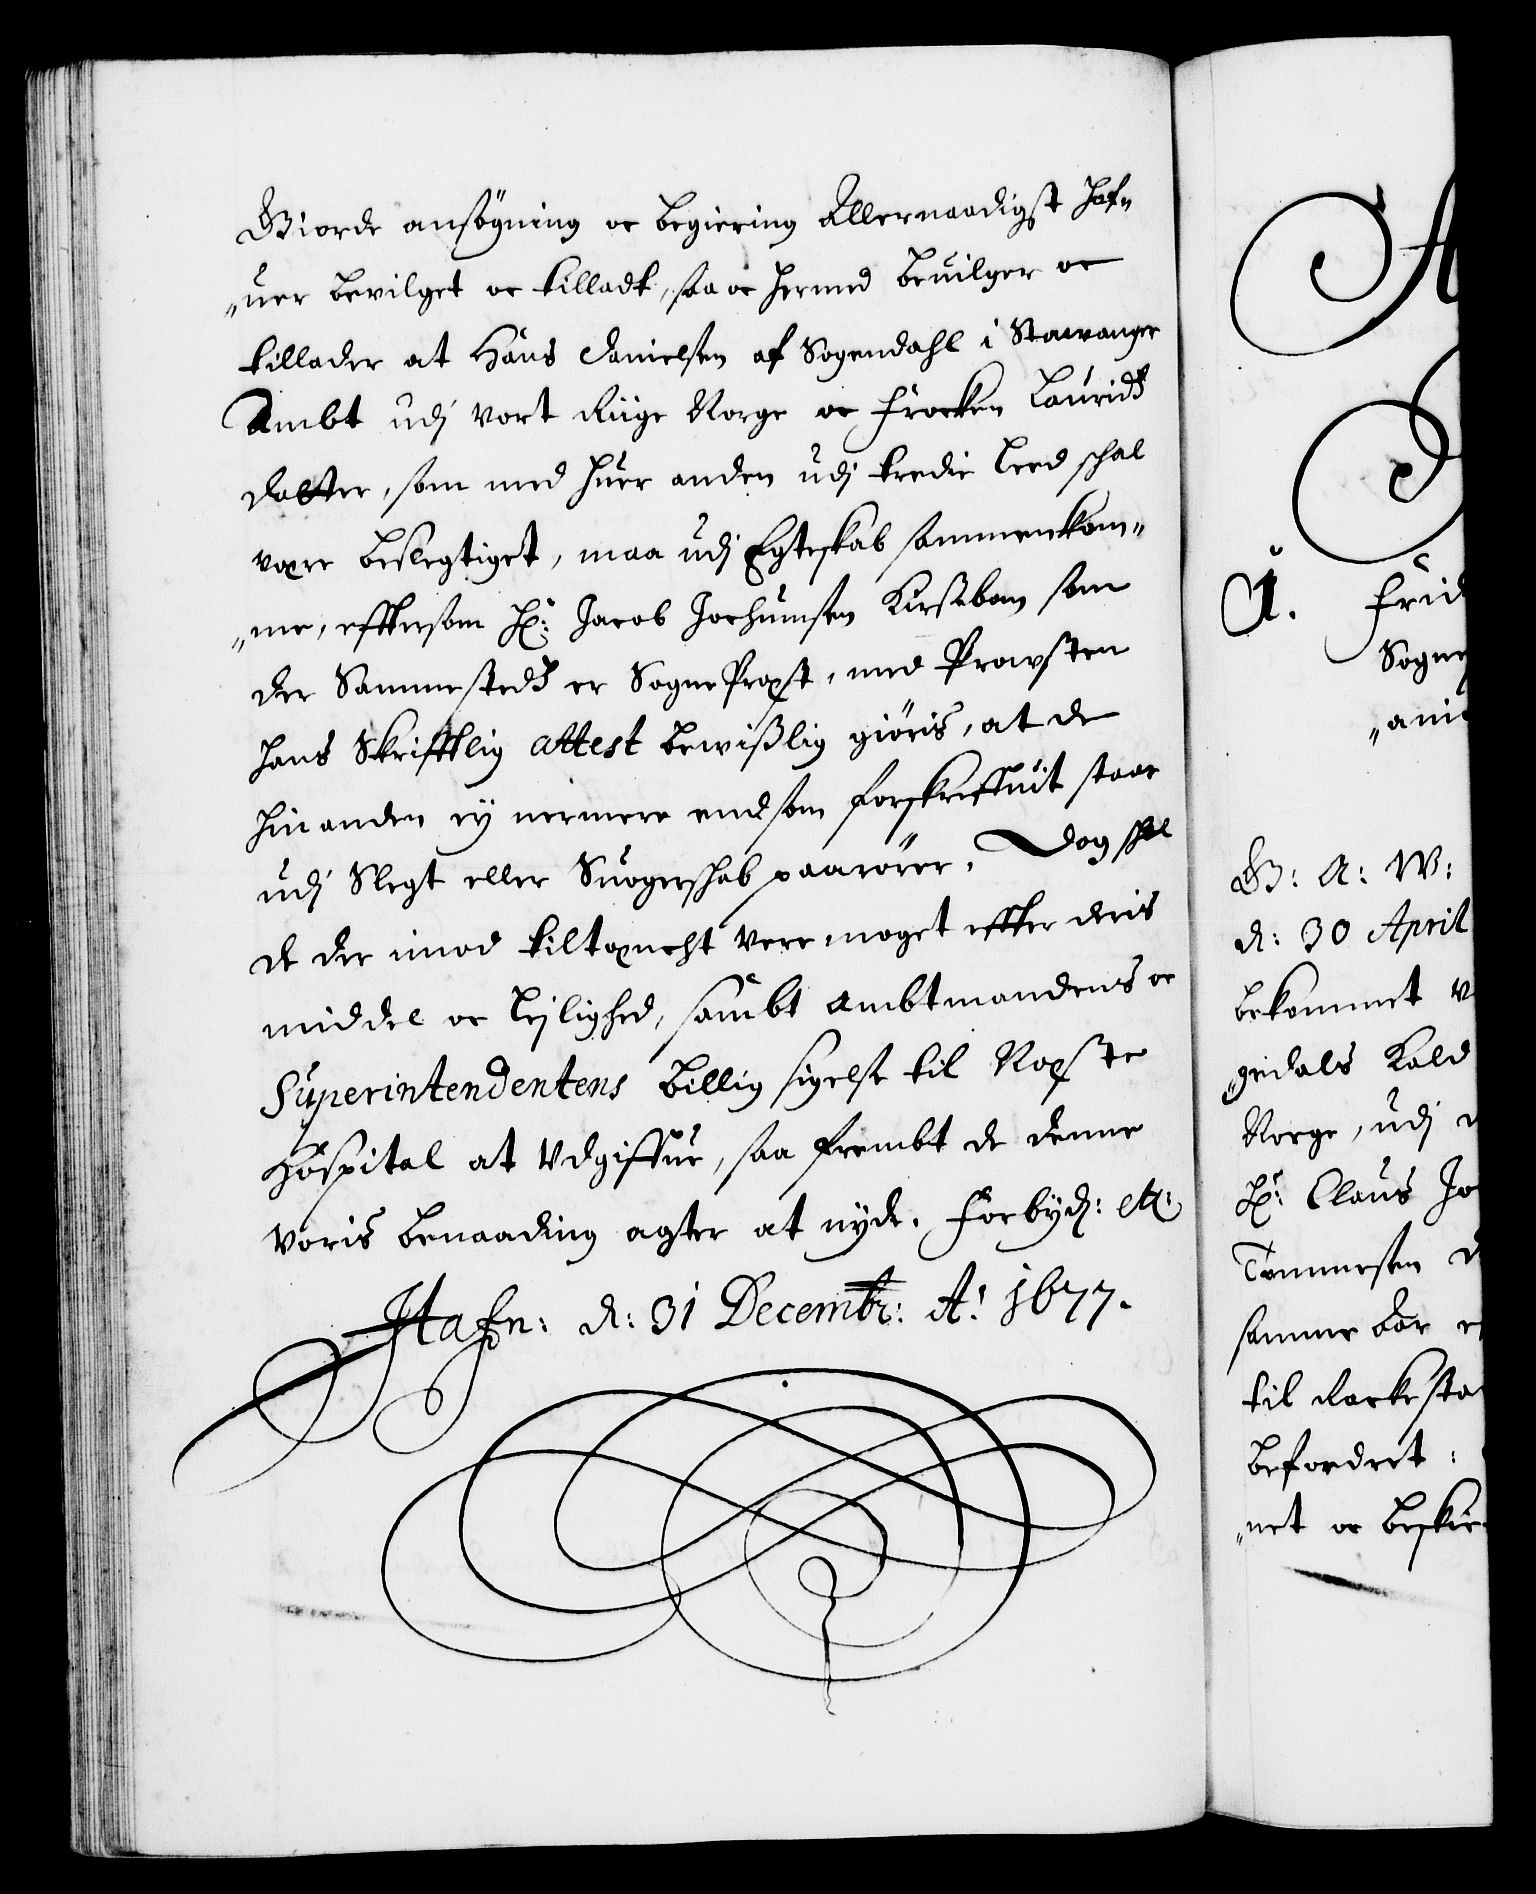 Giorde ansögning oc begiering Allernaadigst haf„
„uer bevilget oc tilladt, saa oc hermed beuilger oc
tillader at Hans Danielsen af Sogendahl i Stawanger
Ambt udj vort Riige Norge oc Frocken Lauridz
datter, som med huer anden udj tredie leed schal
være beslegtiget, maa udj Egteskab sammenkom„
„me, efftersom Hr: Jacob Jochumsen Kirsebom som
der Sammestedz er Sogne Præst, med Prowsten
hans Skrifftlig attest bewißlig giöris, at de
hin anden ey nermere end som forskreffuit staar
udj Slegt eller Suogerschab paarörer. Dog schal
de der imod tiltænckt vere noget effter deris
middel oc leylighed, sambt Ambtmandens oc
Superintendentens billig sigelse til Næste
Hospital at Udgiffue, saa frembt de denne
voris benaading agter at nyde. Forbydj: etc:
Hafn: d: 31 Decembr: Ao: 1677.
A
1. Frid
Sogne
„ani
G: A: W:
d: 30 April
bekommet v
„gndals Kald
Norge, udj
Hr: Claus Jo
Tommesen d
samme
til
befordret :
„net oc beskie